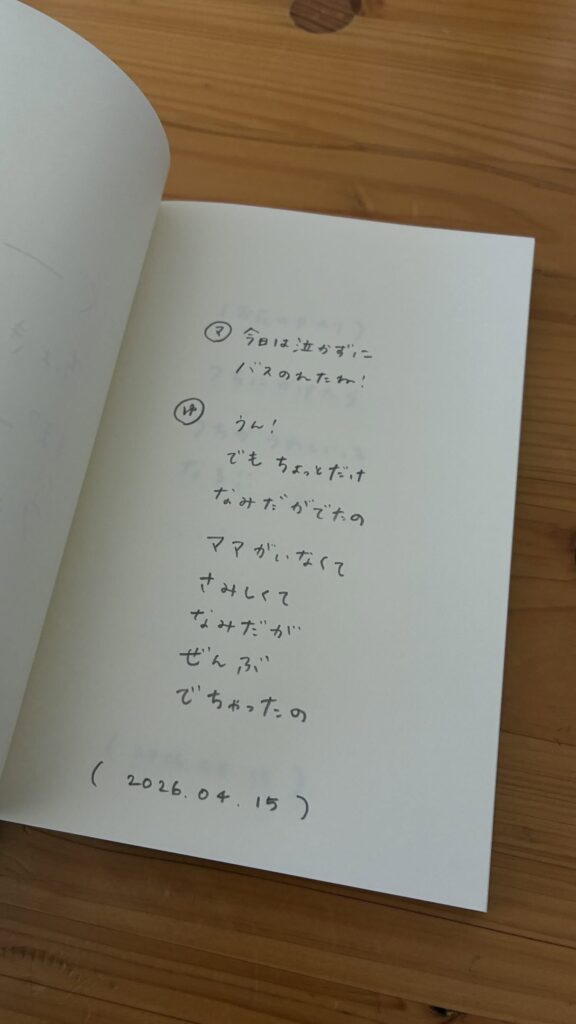 マ 今日は泣かずに
バスのれたね!
ゆ うん!
でも ちょっとだけ
なみだがでたの
ママがいなくて
さみしくて
なみだが
ぜんぶ
でちゃったの
( 2026.04.15 )